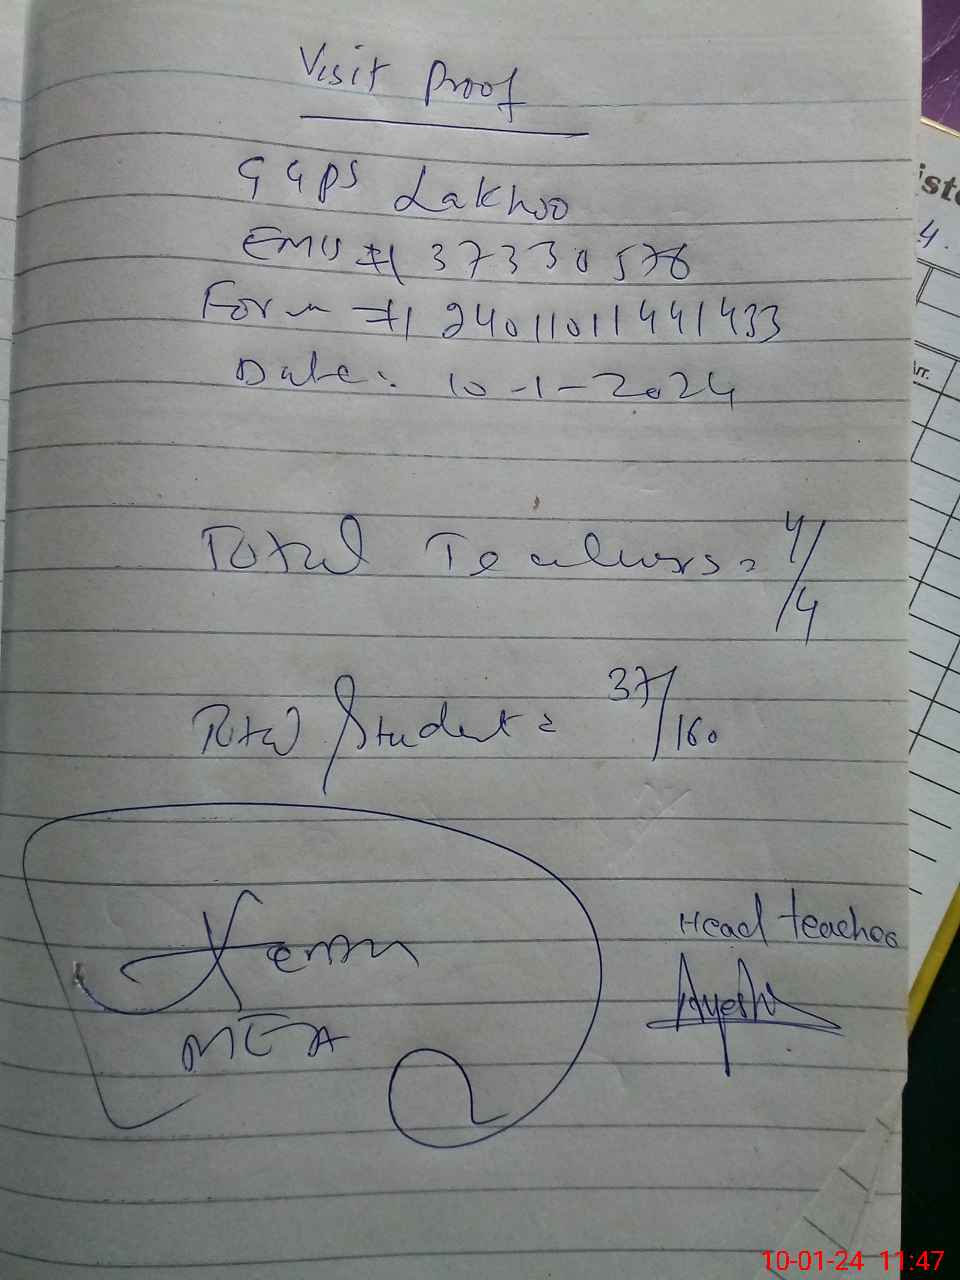 Visit Proof
GGPS Lakhoo
EMIS # 37330576
Form # 24011011441433
Date: 10-1-2024
Total Teachers = 4/4
Total Student = 37/160
MEA
Head teacher
Ayesha
iste
4.
Arr.
10-01-24 11:47